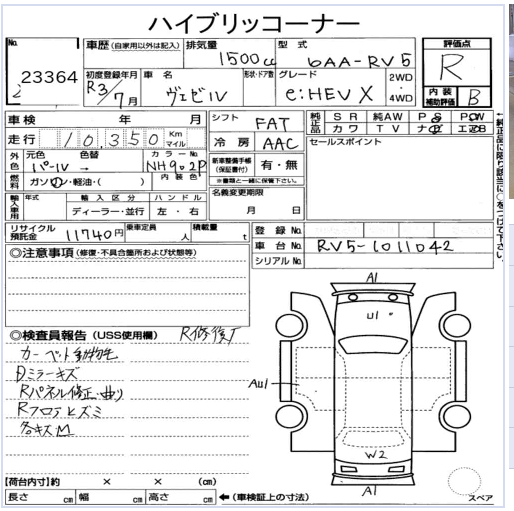 ハイブリッコーナー
No. 車歴 (自家用以外は記入) 排気量 型式 評価点
23364 1500cc 6AA-RV5 R
初度登録年月 車名 形状・ドア数 グレード 2WD
R3/7月 ヴェゼル e:HEV X ・4WD 内装補助評価 B
車検 年 月 シフト FAT 純正品 SR 純AW PS PW
走行 10,350 Km マイル 冷房 AAC カワ TV ナビ エアB
外色 元色 色替 カラーNo. 新車整備手帳(保証書付) 有・無 セールスポイント
パール → NH902P 内装色 ※書類と一緒に保管下さい。
燃料 ガソリン・軽油・( ) 名義変更期限
輸入車用 年式 輸入区分 ハンドル 月 日
ディーラー・並行 左・右
リサイクル預託金 11740円 乗車定員 人 積載量 t 登録No.
車台No. RV5-1011042
◎注意事項 (修復・不具合箇所および状態等) シリアルNo.
←純正品に限り該当に○をつけて下さい。
A1
U1
◎検査員報告 (USS使用欄) R修復有
カーペット動物毛
Dミラーキズ
Rパネル修正・曲り
Rフロアヒズミ
各キズM
AU1
W2
A1
【荷台内寸】約 × × (cm)
長さ cm 幅 cm 高さ cm ←(車検証上の寸法)
スペア